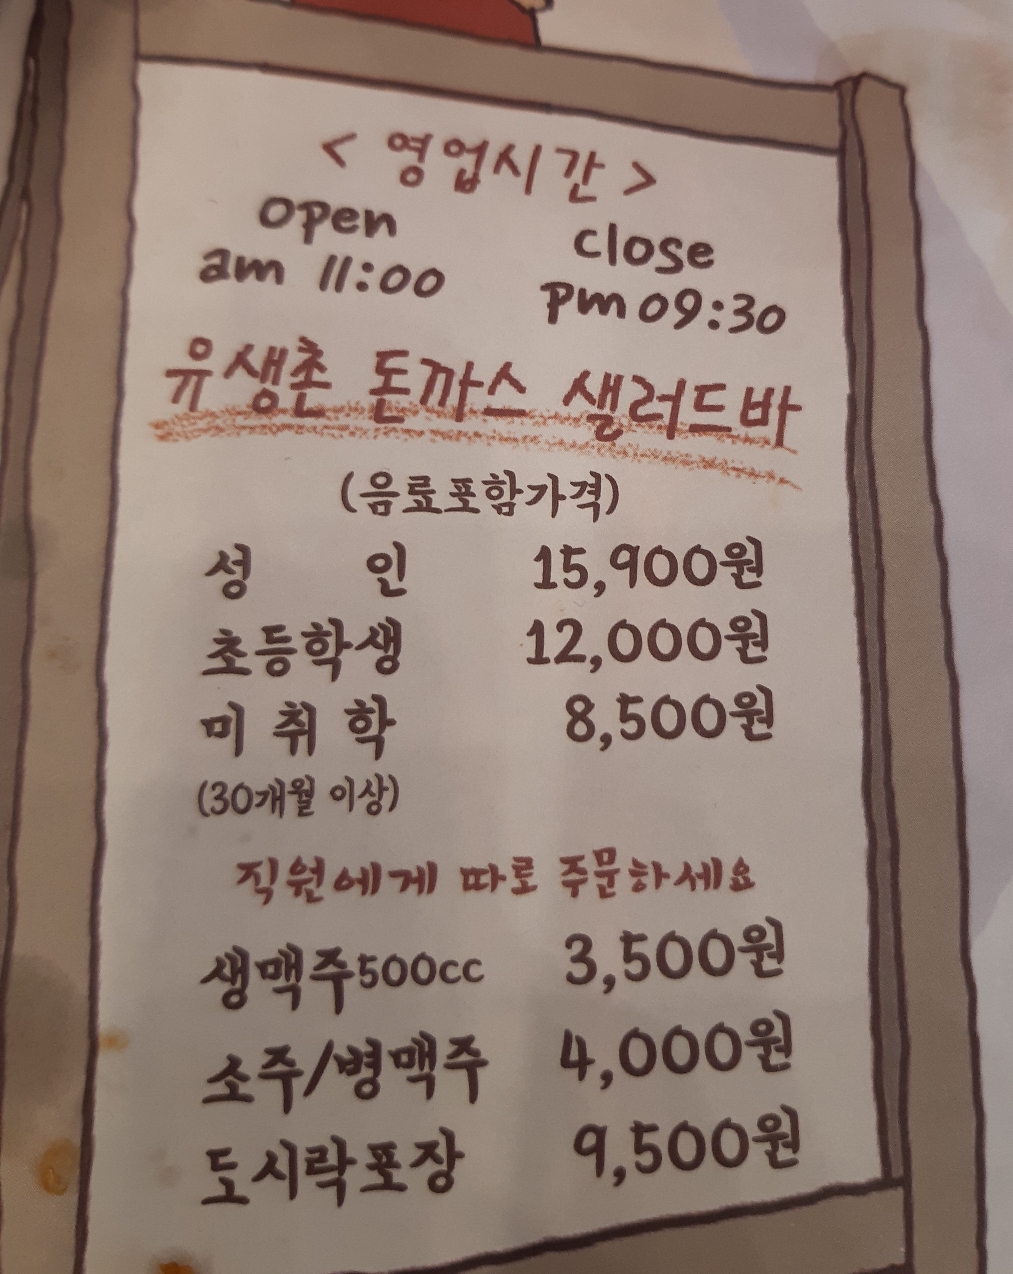 < 영업시간 >
open close
am 11:00 pm 09:30
유생촌 돈까스 샐러드바
(음료포함가격)
성 인 15,900원
초등학생 12,000원
미 취 학 8,500원
(30개월 이상)
직원에게 따로 주문하세요
생맥주500cc 3,500원
소주/병맥주 4,000원
도시락포장 9,500원